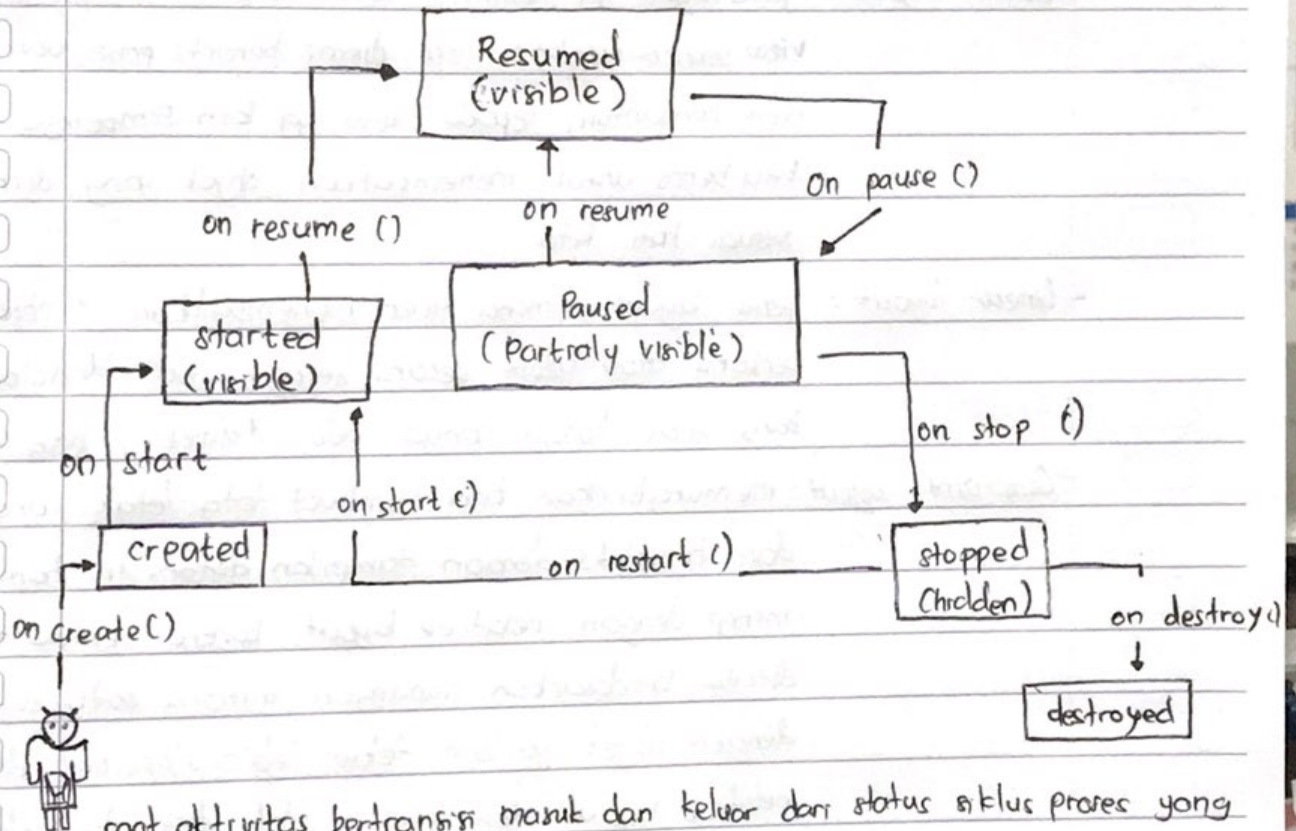 Resumed
(visible)
on pause ()
on resume ()
on resume
Paused
(Partraly visible)
started
(visible)
on stop ()
on start
on start ()
created
on restart ()
stopped
(hidden)
on create()
on destroy()
destroyed
aktivitas bertransisi masuk dan keluar dari status siklus proses yang